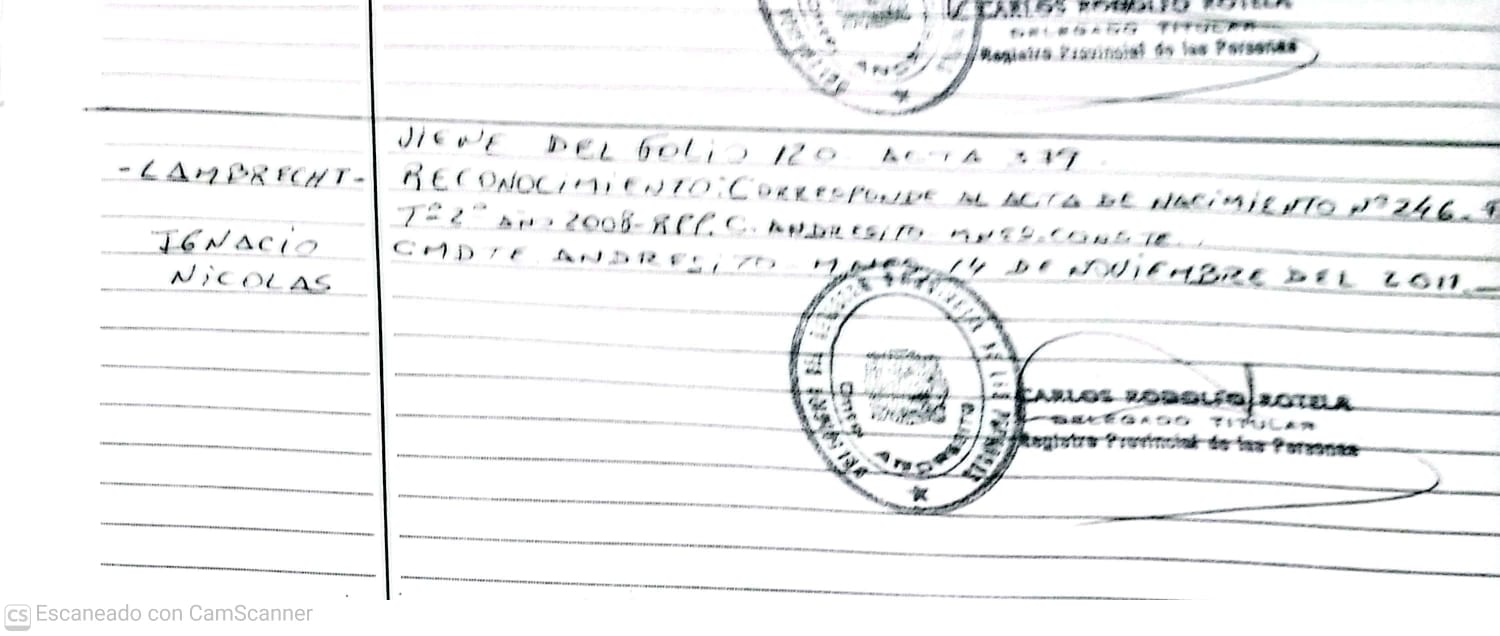 CARLOS RODOLFO ROTELA
DELEGADO TITULAR
Registro Provincial de las Personas
VIENE DEL FOLIO 120 ACTA 379.
-LAMBRECHT-
RECONOCIMIENTO: CORRESPONDE AL ACTA DE NACIMIENTO Nº 246-
Tº 2º AÑO 2008-RPP.C. ANDRESITO MNES. CONSTE.
IGNACIO
NICOLAS
CMDTE ANDRESITO MNES, 14 DE NOVIEMBRE DEL 2011.-
CARLOS RODOLFO ROTELA
DELEGADO TITULAR
Registro Provincial de las Personas
CS Escaneado con CamScanner